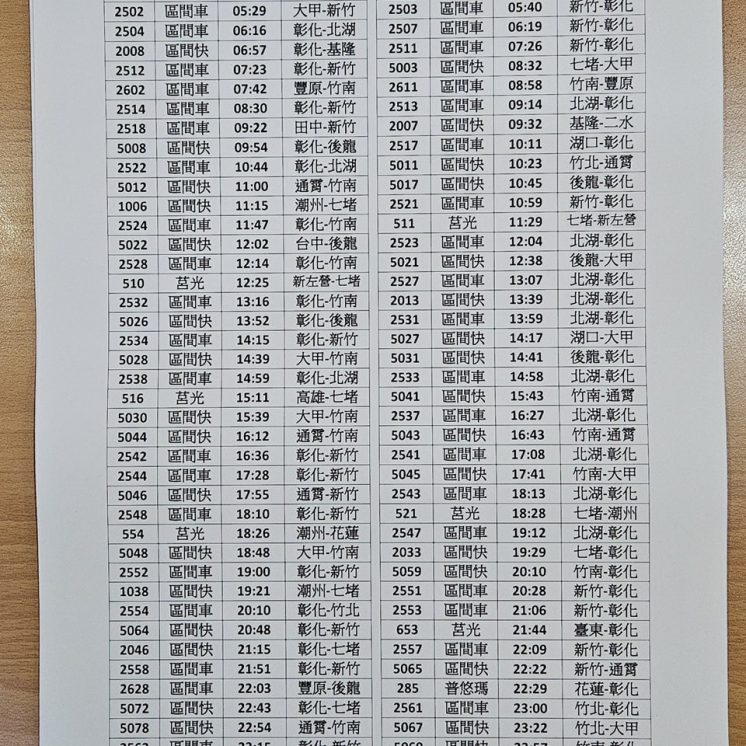 2502 區間車 05:29 大甲-新竹
2504 區間車 06:16 彰化-北湖
2008 區間快 06:57 彰化-基隆
2512 區間車 07:23 彰化-新竹
2602 區間車 07:42 豐原-竹南
2514 區間車 08:30 彰化-新竹
2518 區間車 09:22 田中-新竹
5008 區間快 09:54 彰化-後龍
2522 區間車 10:44 彰化-北湖
5012 區間快 11:00 通霄-竹南
1006 區間快 11:15 潮州-七堵
2524 區間車 11:47 彰化-竹南
5022 區間快 12:02 台中-後龍
2528 區間車 12:14 彰化-竹南
510 莒光 12:25 新左營-七堵
2532 區間車 13:16 彰化-竹南
5026 區間快 13:52 彰化-後龍
2534 區間車 14:15 彰化-新竹
5028 區間快 14:39 大甲-竹南
2538 區間車 14:59 彰化-北湖
516 莒光 15:11 高雄-七堵
5030 區間快 15:39 大甲-竹南
5044 區間快 16:12 通霄-竹南
2542 區間車 16:36 彰化-新竹
2544 區間車 17:28 彰化-新竹
5046 區間快 17:55 通霄-新竹
2548 區間車 18:10 彰化-新竹
554 莒光 18:26 潮州-花蓮
5048 區間快 18:48 大甲-竹南
2552 區間車 19:00 彰化-新竹
1038 區間快 19:21 潮州-七堵
2554 區間車 20:10 彰化-竹北
5064 區間快 20:48 彰化-新竹
2046 區間快 21:15 彰化-七堵
2558 區間車 21:51 彰化-新竹
2628 區間車 22:03 豐原-後龍
5072 區間快 22:43 彰化-七堵
5078 區間快 22:54 通霄-竹南
2503 區間車 05:40 新竹-彰化
2507 區間車 06:19 新竹-彰化
2511 區間車 07:26 新竹-彰化
5003 區間快 08:32 七堵-大甲
2611 區間車 08:58 竹南-豐原
2513 區間車 09:14 北湖-彰化
2007 區間快 09:32 基隆-二水
2517 區間車 10:11 湖口-彰化
5011 區間快 10:23 竹北-通霄
5017 區間快 10:45 後龍-彰化
2521 區間車 10:59 新竹-彰化
511 莒光 11:29 七堵-新左營
2523 區間車 12:04 北湖-彰化
5021 區間快 12:38 後龍-大甲
2527 區間車 13:07 北湖-彰化
2013 區間快 13:39 北湖-彰化
2531 區間車 13:59 北湖-彰化
5027 區間快 14:17 湖口-大甲
5031 區間快 14:41 後龍-彰化
2533 區間車 14:58 北湖-彰化
5041 區間快 15:43 竹南-通霄
2537 區間車 16:27 北湖-彰化
5043 區間快 16:43 竹南-通霄
2541 區間車 17:08 北湖-彰化
5045 區間快 17:41 竹南-大甲
2543 區間車 18:13 北湖-彰化
521 莒光 18:28 七堵-潮州
2547 區間車 19:12 北湖-彰化
2033 區間快 19:29 七堵-彰化
5059 區間快 20:10 竹南-彰化
2551 區間車 20:28 新竹-彰化
2553 區間車 21:06 新竹-彰化
653 莒光 21:44 臺東-彰化
2557 區間車 22:09 新竹-彰化
5065 區間快 22:22 新竹-通霄
285 普悠瑪 22:29 花蓮-彰化
2561 區間車 23:00 竹北-彰化
5067 區間快 23:22 竹北-大甲